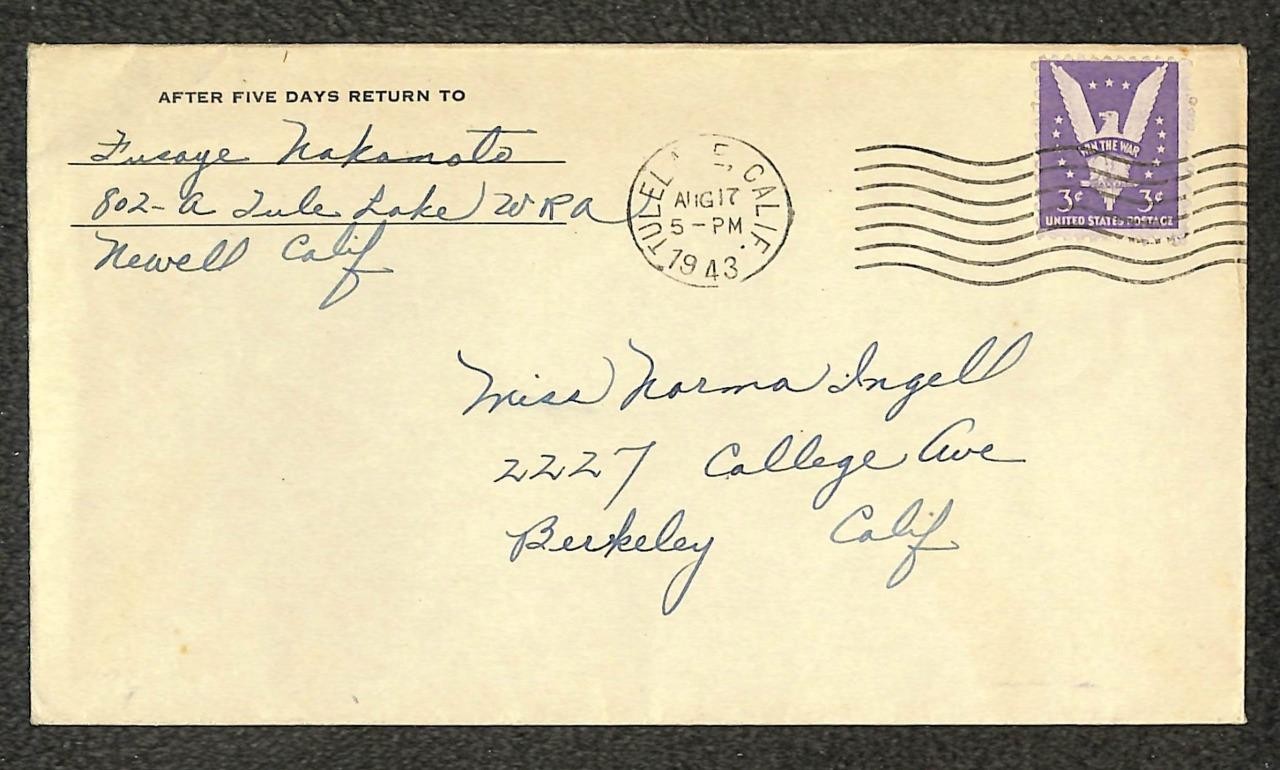 AFTER FIVE DAYS RETURN TO
Fusaye Nakamoto
802-A Tule Lake WRA
Newell Calif
TULELAKE, CALIF.
AUG 17
5-PM
1943
WIN THE WAR
3¢ 3¢
UNITED STATES POSTAGE
Miss Norma Ingell
2227 College Ave
Berkeley Calif